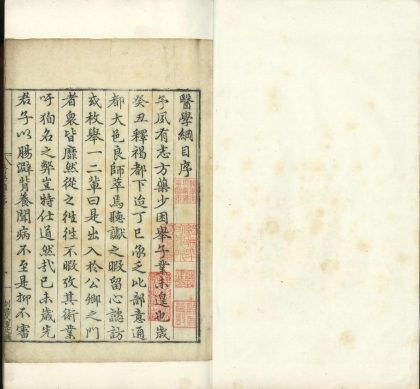 醫學綱目序
予夙有志方藥少困舉子業未遑也歲
癸丑釋褐都下迨丁巳備乏此部意通
都大邑良師萃焉聽讞之暇留心諮訪
或枚舉一二輩曰是出入於公卿之門
者衆皆靡然從之徃徃不暇攷其術業
吁狥名之弊豈特仕道然哉己未歲先
君子以腸澼背養聞病不至是抑不審